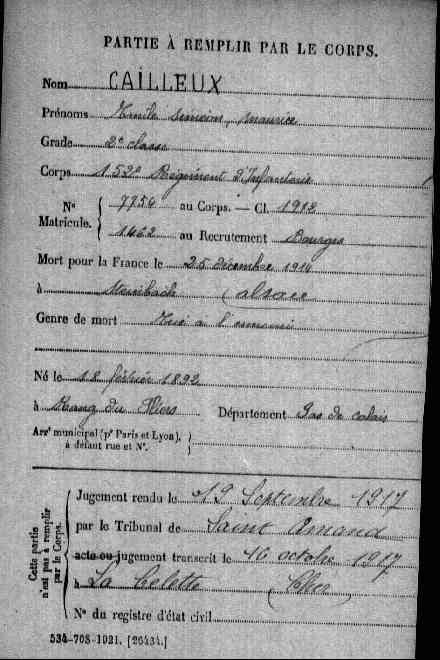 PARTIE À REMPLIR PAR LE CORPS.
Nom CAILLEUX
Prénoms Emile Maurice
Grade 2e classe
Corps 152e Régiment d'Infanterie
No Matricule. { 7754 au Corps. — Cl. 1912
1462 au Recrutement Bourges
Mort pour la France le 25 décembre 1914
à Steinbach (alsace
Genre de mort Tué a l'ennemi
Né le 18 février 1892
à Rang du Fliers Département Pas de calais
Arrt municipal (pr Paris et Lyon), }
à défaut rue et No. }
Cette partie n'est pas à remplir par le Corps.
Jugement rendu le 19 Septembre 1917
par le Tribunal de Saint Amand
acte ou jugement transcrit le 16 octobre 1917
à La Celette (Cher)
No du registre d'état civil
534-708-1921. [26434.]